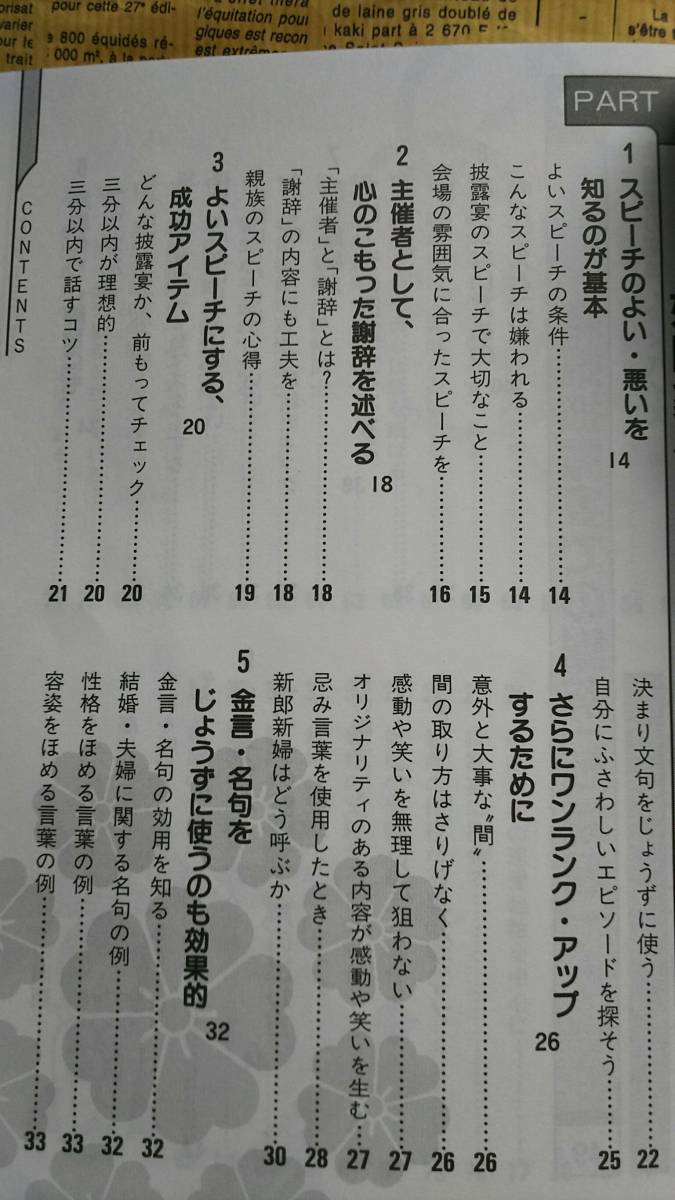 orisat
varier
our le
trait
pour cette 27e édi-
e 800 équidés ré-
l'équitation pour
giques est recon
est extrêm
de laine gris doublé de
kaki part à 2 670
La
s'être
PART
1 スピーチのよい・悪いを
知るのが基本 14
よいスピーチの条件……14
こんなスピーチは嫌われる……14
披露宴のスピーチで大切なこと……15
会場の雰囲気に合ったスピーチを……16
2 主催者として、
心のこもった謝辞を述べる 18
「主催者」と「謝辞」とは?……18
「謝辞」の内容にも工夫を……18
親族のスピーチの心得……19
3 よいスピーチにする、
成功アイテム 20
どんな披露宴か、前もってチェック……20
三分以内が理想的……20
三分以内で話すコツ……21
決まり文句をじょうずに使う……22
自分にふさわしいエピソードを探そう……25
4 さらにワンランク・アップ
するために 26
意外と大事な〝間〟……26
間の取り方はさりげなく……26
感動や笑いを無理して狙わない……27
オリジナリティのある内容が感動や笑いを生む……27
忌み言葉を使用したとき……28
新郎新婦はどう呼ぶか……30
5 金言・名句を
じょうずに使うのも効果的 32
金言・名句の効用を知る……32
結婚・夫婦に関する名句の例……32
性格をほめる言葉の例……33
容姿をほめる言葉の例……33
CONTENTS